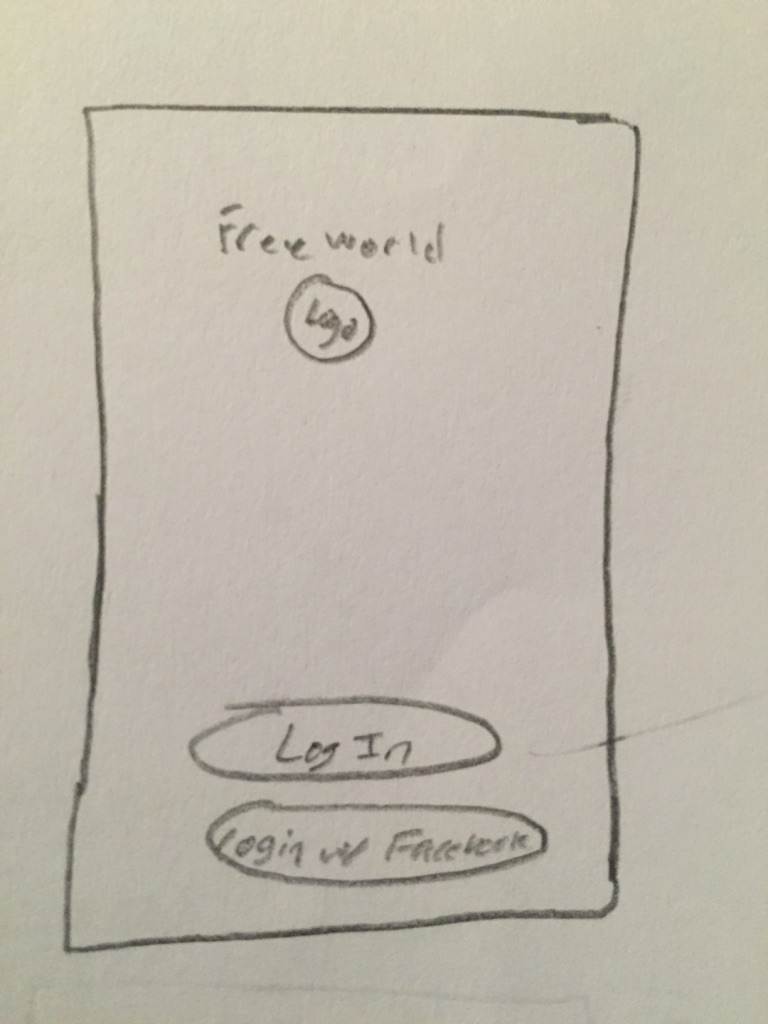 Free world
Logo
Log In
Login w/ Facebook